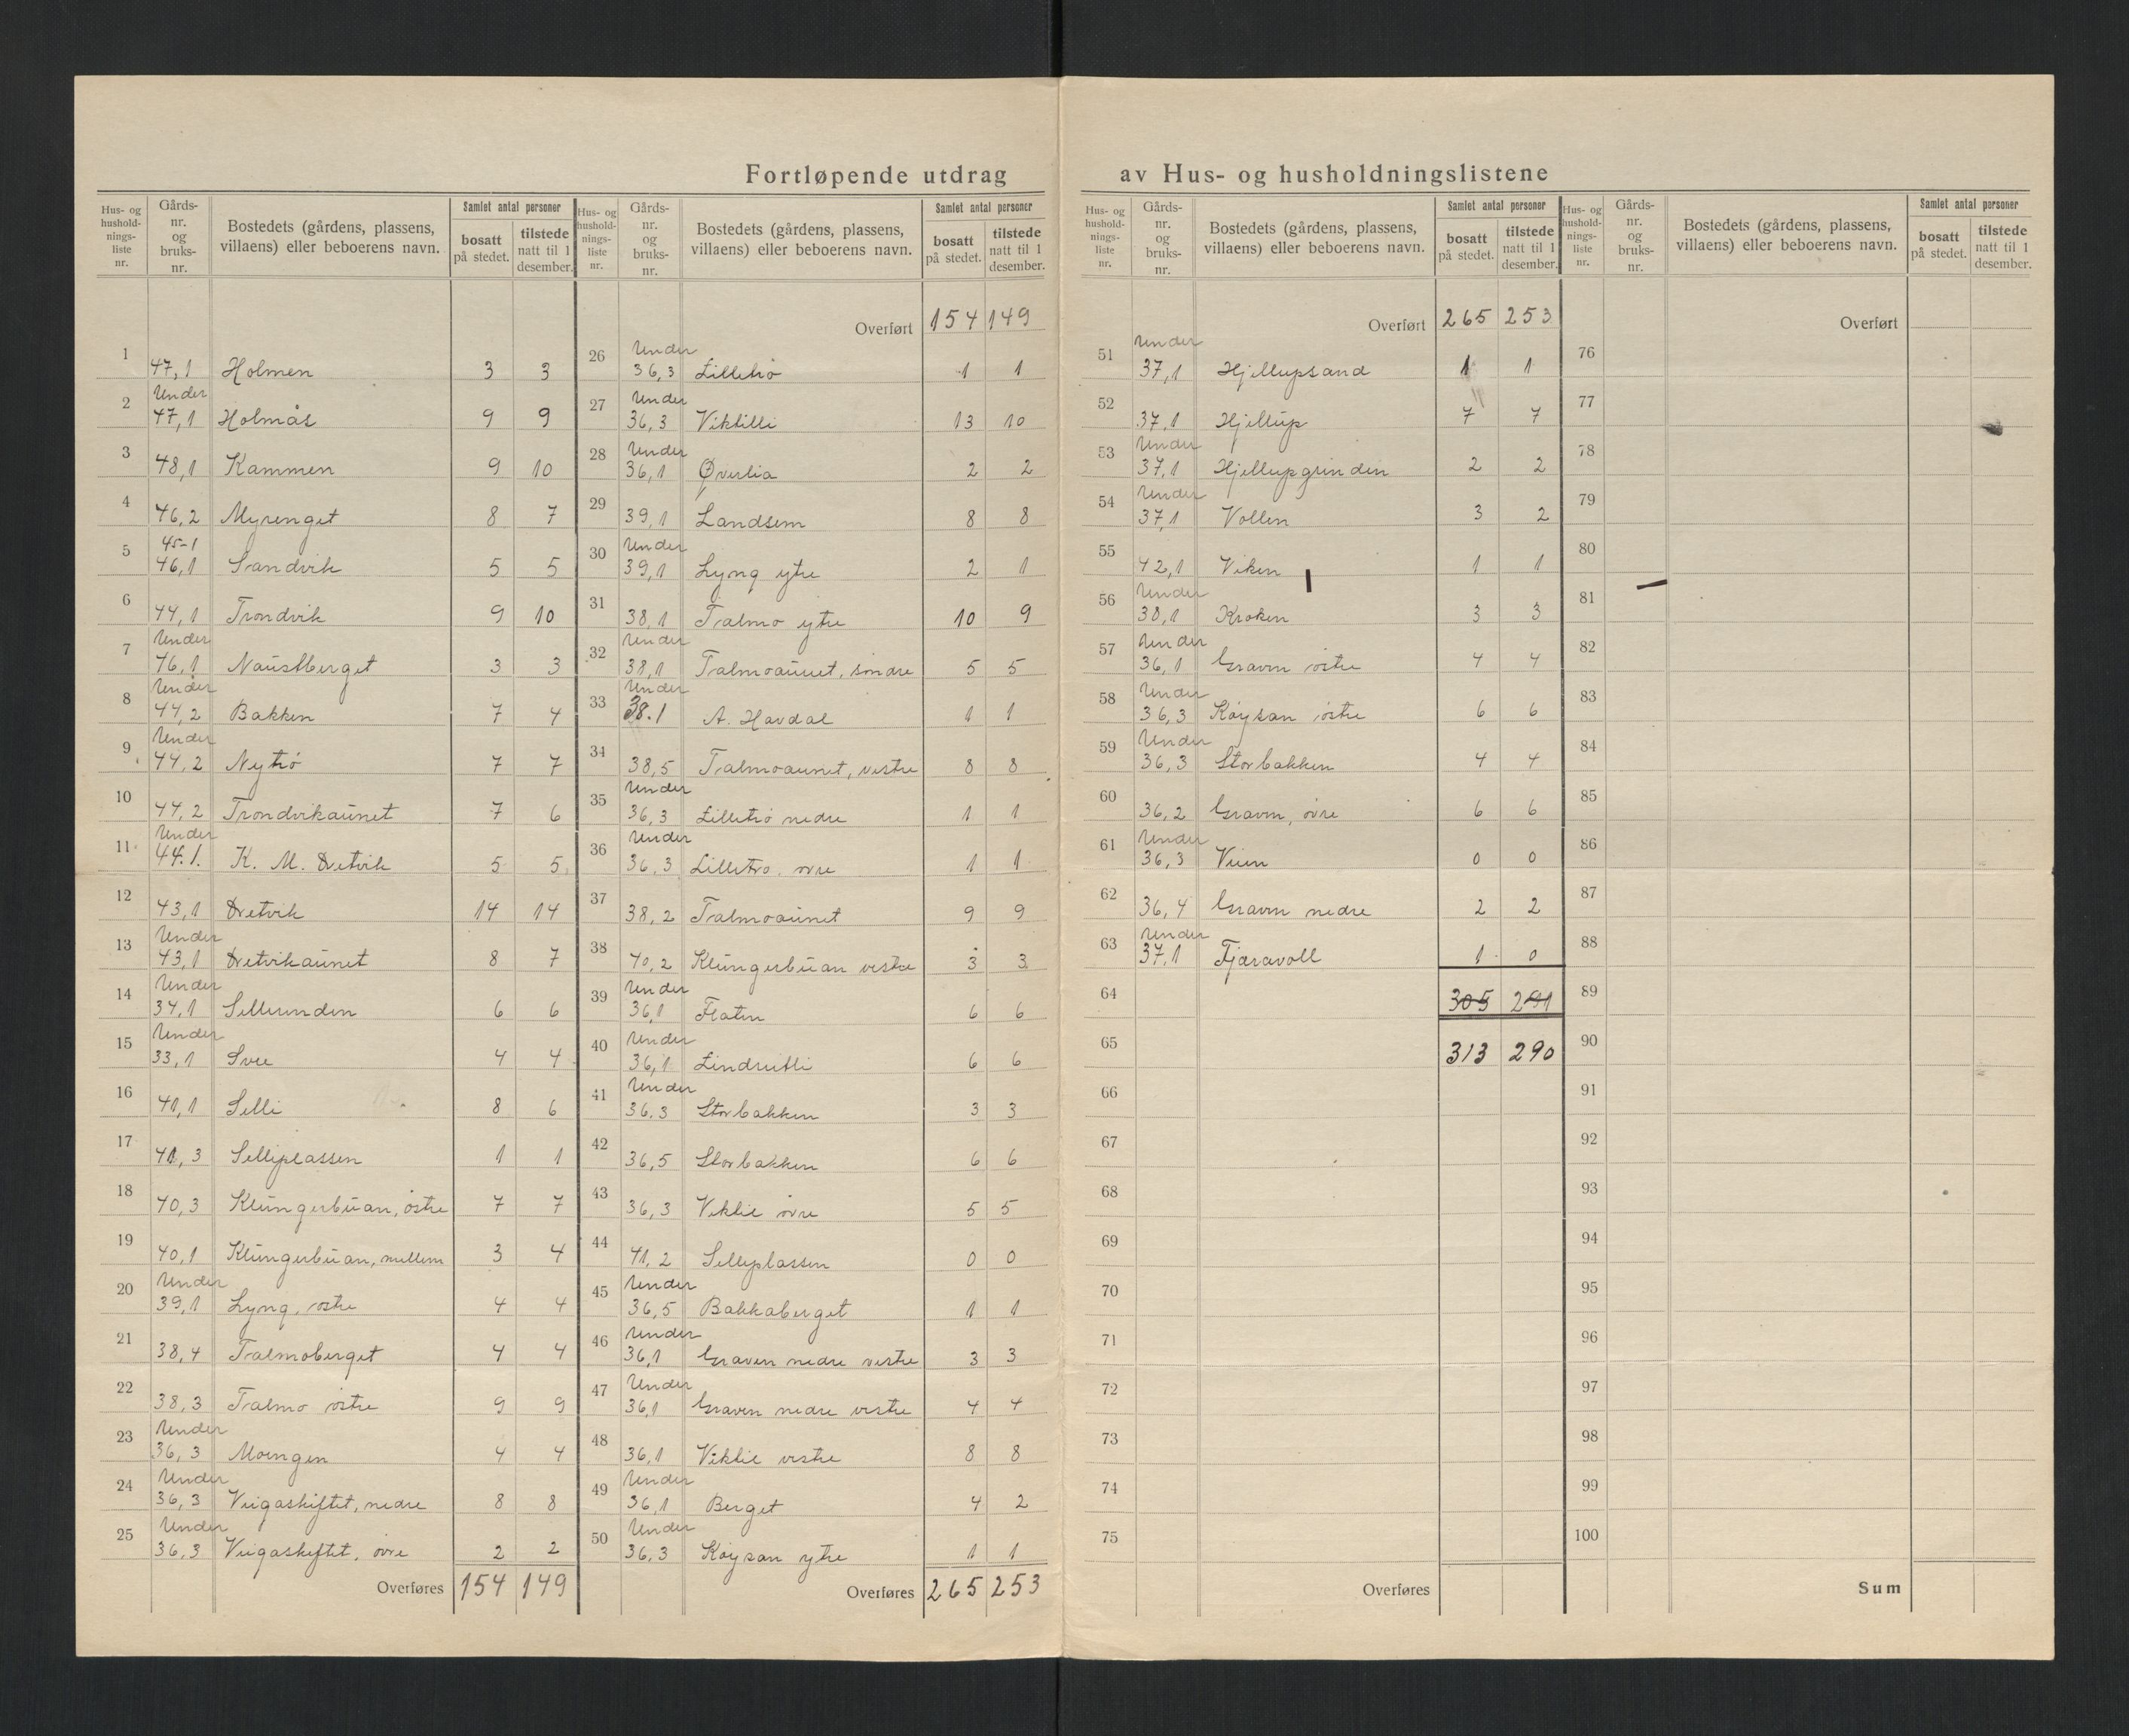 Fortløpende utdrag av Hus- og husholdningslistene
Hus- og husholdnings-liste nr. Gårds-nr. og bruks-nr. Bostedets (gårdens, plassens, villaens) eller beboerens navn. Samlet antal personer bosatt på stedet. tilstede natt til 1 desember.
1 47,1 Holmen 3 3
2 Under 47,1 Holmås 9 9
3 48,1 Kammen 9 10
4 46,2 Myrenget 8 7
5 45-1 46,1 Sandvik 5 5
6 44,1 Trondvik 9 10
7 Under 46,1 Naustberget 3 3
8 Under 44,2 Bakken 7 4
9 Under 44,2 Nytrø 7 7
10 44,2 Trondvikaunet 7 6
11 Under 44.1. K. M. Dretvik 5 5
12 43,1 Dretvik 14 14
13 Under 43,1 Dretvikaunet 8 7
14 Under 34,1 Selleunden 6 6
15 Under 33,1 Svee 4 4
16 41,1 Selli 8 6
17 41,3 Selliplassen 1 1
18 40,3 Klungerbuan, østre 7 7
19 40,1 Klungerbuan, mellem 3 4
20 Under 39,1 Lyng, østre 4 4
21 38,4 Tralmoberget 4 4
22 38,3 Tralmo østre 9 9
23 Under 36,3 Moengen 4 4
24 Under 36,3 Veigaskiftet, nedre 8 8
25 Under 36,3 Veigaskiftet, øvre 2 2
Overføres 154 149
Hus- og husholdnings-liste nr. Gårds-nr. og bruks-nr. Bostedets (gårdens, plassens, villaens) eller beboerens navn. Samlet antal personer bosatt på stedet. tilstede natt til 1 desember.
Overført 154 149
26 Under 36,3 Lilletrø 1 1
27 Under 36,3 Viktilli 13 10
28 Under 36,1 Øverlia 2 2
29 39,1 Landsem 8 8
30 Under 39,1 Lyng ytre 2 1
31 38,1 Tralmo ytre 10 9
32 Under 38,1 Tralmoaunet, søndre 5 5
33 Under 38.1 A. Havdal 1 1
34 38,5 Tralmoaunet, vestre 8 8
35 Under 36,3 Lilletrø nedre 1 1
36 Under 36,3 Lilletrø øvre 1 1
37 38,2 Tralmoaunet 9 9
38 40,2 Klungerbuan vestre 3 3
39 Under 36,1 Flaten 6 6
40 Under 36,1 Lindsetli 6 6
41 Under 36,3 Storbakken 3 3
42 36,5 Storbakken 6 6
43 36,3 Viklie øvre 5 5
44 41,2 Selliplassen 0 0
45 Under 36,5 Bakkaberget 1 1
46 Under 36,1 Graven nedre vestre 3 3
47 Under 36,1 Graven nedre vestre 4 4
48 36,1 Viklie vestre 8 8
49 Under 36,1 Berget 4 2
50 Under 36,3 Køysan ytre 1 1
Overføres 265 253
Hus- og husholdnings-liste nr. Gårds-nr. og bruks-nr. Bostedets (gårdens, plassens, villaens) eller beboerens navn. Samlet antal personer bosatt på stedet. tilstede natt til 1 desember.
Overført 265 253
51 Under 37,1 Hjellupsand 1 1
52 37,1 Hjellup 7 7
53 Under 37,1 Hjellupgrinden 2 2
54 Under 37,1 Vollen 3 2
55 42,1 Viken 1 1
56 Under 38,1 Kroken 3 3
57 Under 36,1 Graven østre 4 4
58 Under 36,3 Køysan østre 6 6
59 Under 36,3 Storbakken 4 4
60 36,2 Graven, øvre 6 6
61 Under 36,3 Veien 0 0
62 36,4 Graven nedre 2 2
63 Under 37,1 Fjæravoll 1 0
64 305 291
65 313 290
66
67
68
69
70
71
72
73
74
75
Overføres
Hus- og husholdnings-liste nr. Gårds-nr. og bruks-nr. Bostedets (gårdens, plassens, villaens) eller beboerens navn. Samlet antal personer bosatt på stedet. tilstede natt til 1 desember.
Overført
76
77
78
79
80
81
82
83
84
85
86
87
88
89
90
91
92
93
94
95
96
97
98
99
100
Sum